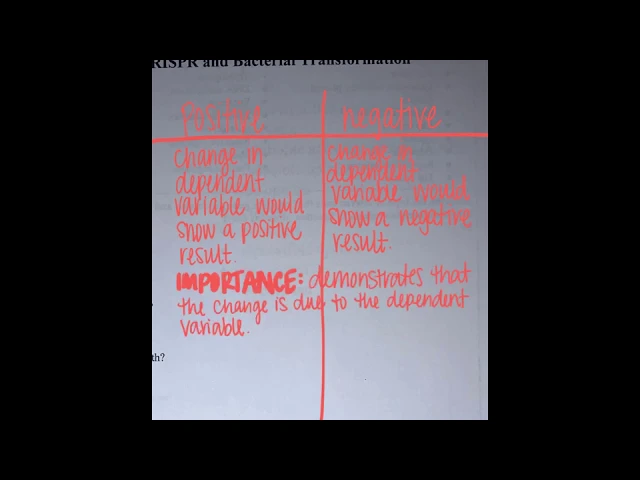 RISPR and Bacterial Transformation
Positive
negative
change in
dependent
variable would
show a positive
result.
change in
dependent
variable would
show a negative
result.
IMPORTANCE: demonstrates that
the change is due to the dependent
variable.
th?